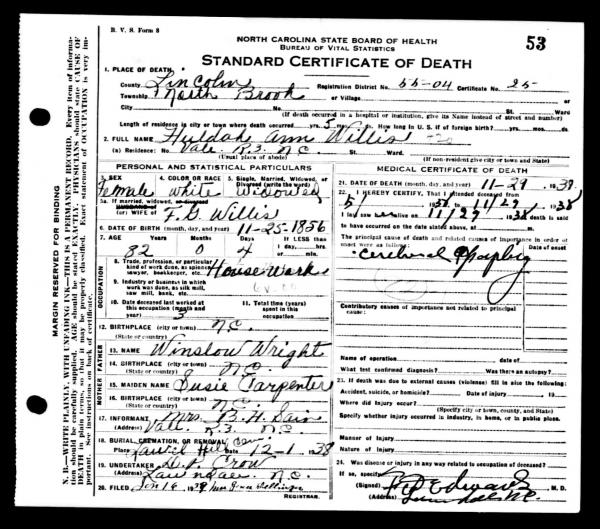 R. V. S. Form 8
NORTH CAROLINA STATE BOARD OF HEALTH
BUREAU OF VITAL STATISTICS
53
STANDARD CERTIFICATE OF DEATH
1. PLACE OF DEATH
County Lincoln Registration District No. 55-04 Certificate No. 25
Township North Brook or Village
City No. St. Ward
(If death occurred in a hospital or institution, give its Name instead of street and number)
Length of residence in city or town where death occurred yrs. 5 mos. How long in U. S. if of foreign birth? yrs. mos. ds.
2. FULL NAME Huldah Ann Willis
(a) Residence: No. Vale R.3 N.C. St. Ward.
(Usual place of abode) (If non-resident give city or town and State)
PERSONAL AND STATISTICAL PARTICULARS
3. SEX 4. COLOR OR RACE 5. Single, Married, Widowed, or Divorced (write the word)
Female White Widowed
5a. If married, widowed, or divorced
(or) WIFE of F. G. Willis
6. DATE OF BIRTH (month, day, and year) 11-25-1856
7. AGE If LESS than
82 0 4 1 day, hrs.
or min.
OCCUPATION
8. Trade, profession, or particular kind of work done, as spinner, sawyer, bookkeeper, etc. House Work
9. Industry or business in which work was done, as silk mill, saw mill, bank, etc.
10. Date deceased last worked at this occupation (month and year) 11. Total time (years) spent in this occupation
12. BIRTHPLACE (city or town) N.C.
(State or country)
FATHER
13. NAME Winslow Wright
14. BIRTHPLACE (city or town) N.C.
(State or country)
MOTHER
15. MAIDEN NAME Susie Carpenter
16. BIRTHPLACE (city or town) N.C.
(State or country)
17. INFORMANT Mrs. B. H. Sain
(Address) Vale R.3 N.C.
18. BURIAL, CREMATION, OR REMOVAL
Place Laurel Hill Date 12-1 1938
19. UNDERTAKER D. A. Crow
(Address) Lawndale N.C.
20. FILED Jan 16 1939
REGISTRAR.
MEDICAL CERTIFICATE OF DEATH
21. DATE OF DEATH (month, day, and year) 11-29 1938
22. I HEREBY CERTIFY, That I attended deceased from
51 1938 to 11/29 1938
I last saw alive on 11/29 1938 death is said
to have occurred on the date stated above, at m.
The principal cause of death and related causes of importance in order of onset were as follows:
Cerebral
Contributory causes of importance not related to principal cause:
Name of operation date of
What test confirmed diagnosis? Was there an autopsy?
23. If death was due to external causes (violence) fill in also the following:
Accident, suicide, or homicide? Date of injury 19
Where did injury occur?
(Specify city or town, county, and State)
Specify whether injury occurred in industry, in home, or in public place.
Manner of Injury
Nature of Injury
24. Was disease or injury in any way related to occupation of deceased?
If so, specify
(Signed) Edwards M. D.
(Address) N.C.
MARGIN RESERVED FOR BINDING
N. B.—WRITE PLAINLY, WITH UNFADING INK—THIS IS A PERMANENT RECORD. Every item of information should be carefully supplied. AGE should be stated EXACTLY. PHYSICIANS should state CAUSE OF DEATH in plain terms, so that it may be properly classified. Exact statement of OCCUPATION is very important. See instructions on back of certificate.